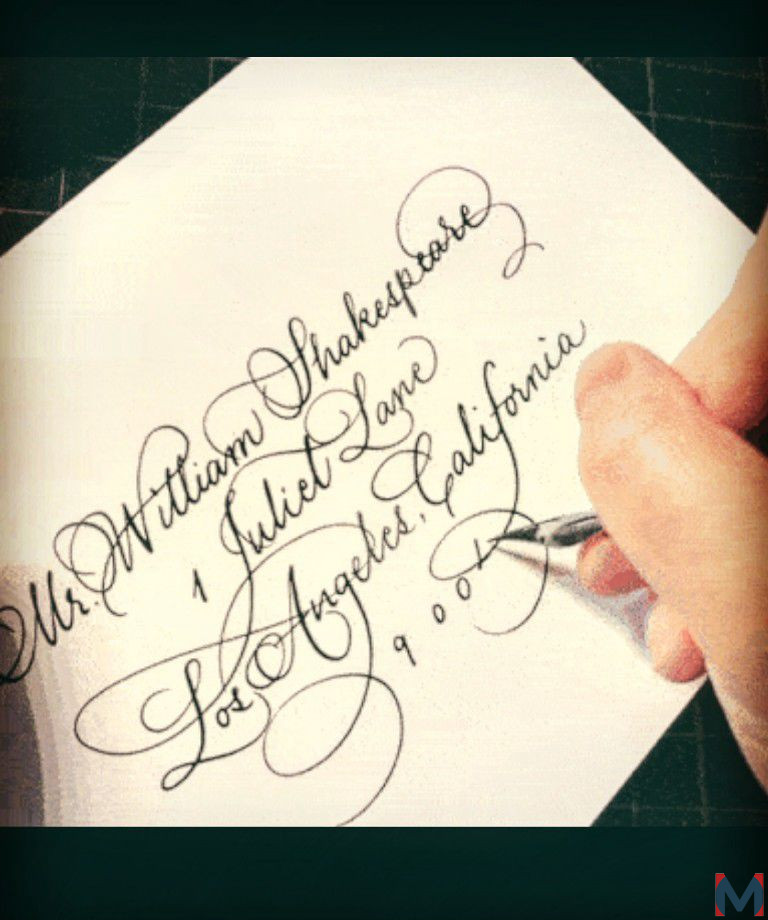 Mr. William Shakespeare
1 Juliet Lane
Los Angeles, California
900
M